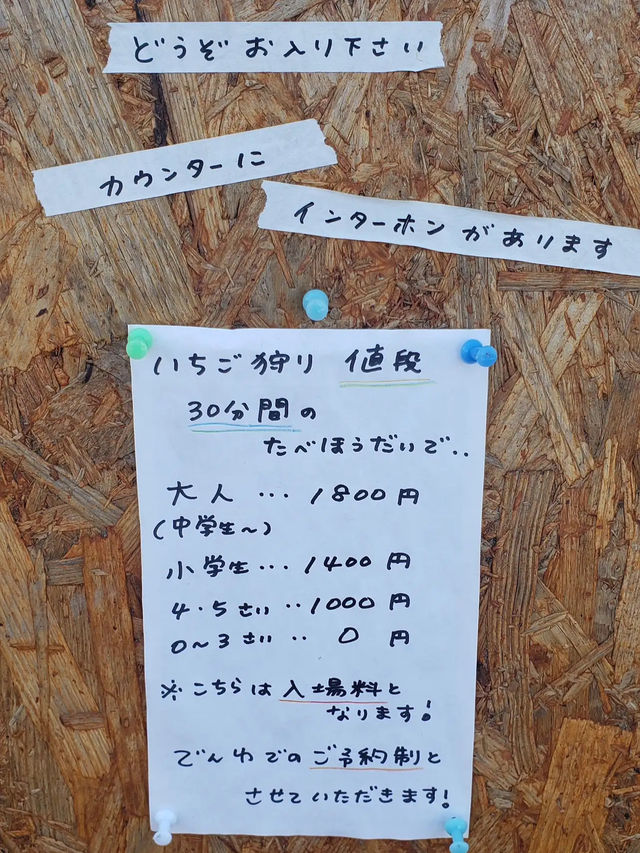 どうぞお入り下さい
カウンターに
インターホンがあります
いちご狩り 値段
30分間の
たべほうだいで..
大人 ... 1800円
(中学生～)
小学生 ... 1400円
4.5さい .. 1000円
0～3さい .. 0円
※こちらは入場料と
なります!
でんわでのご予約制と
させていただきます!